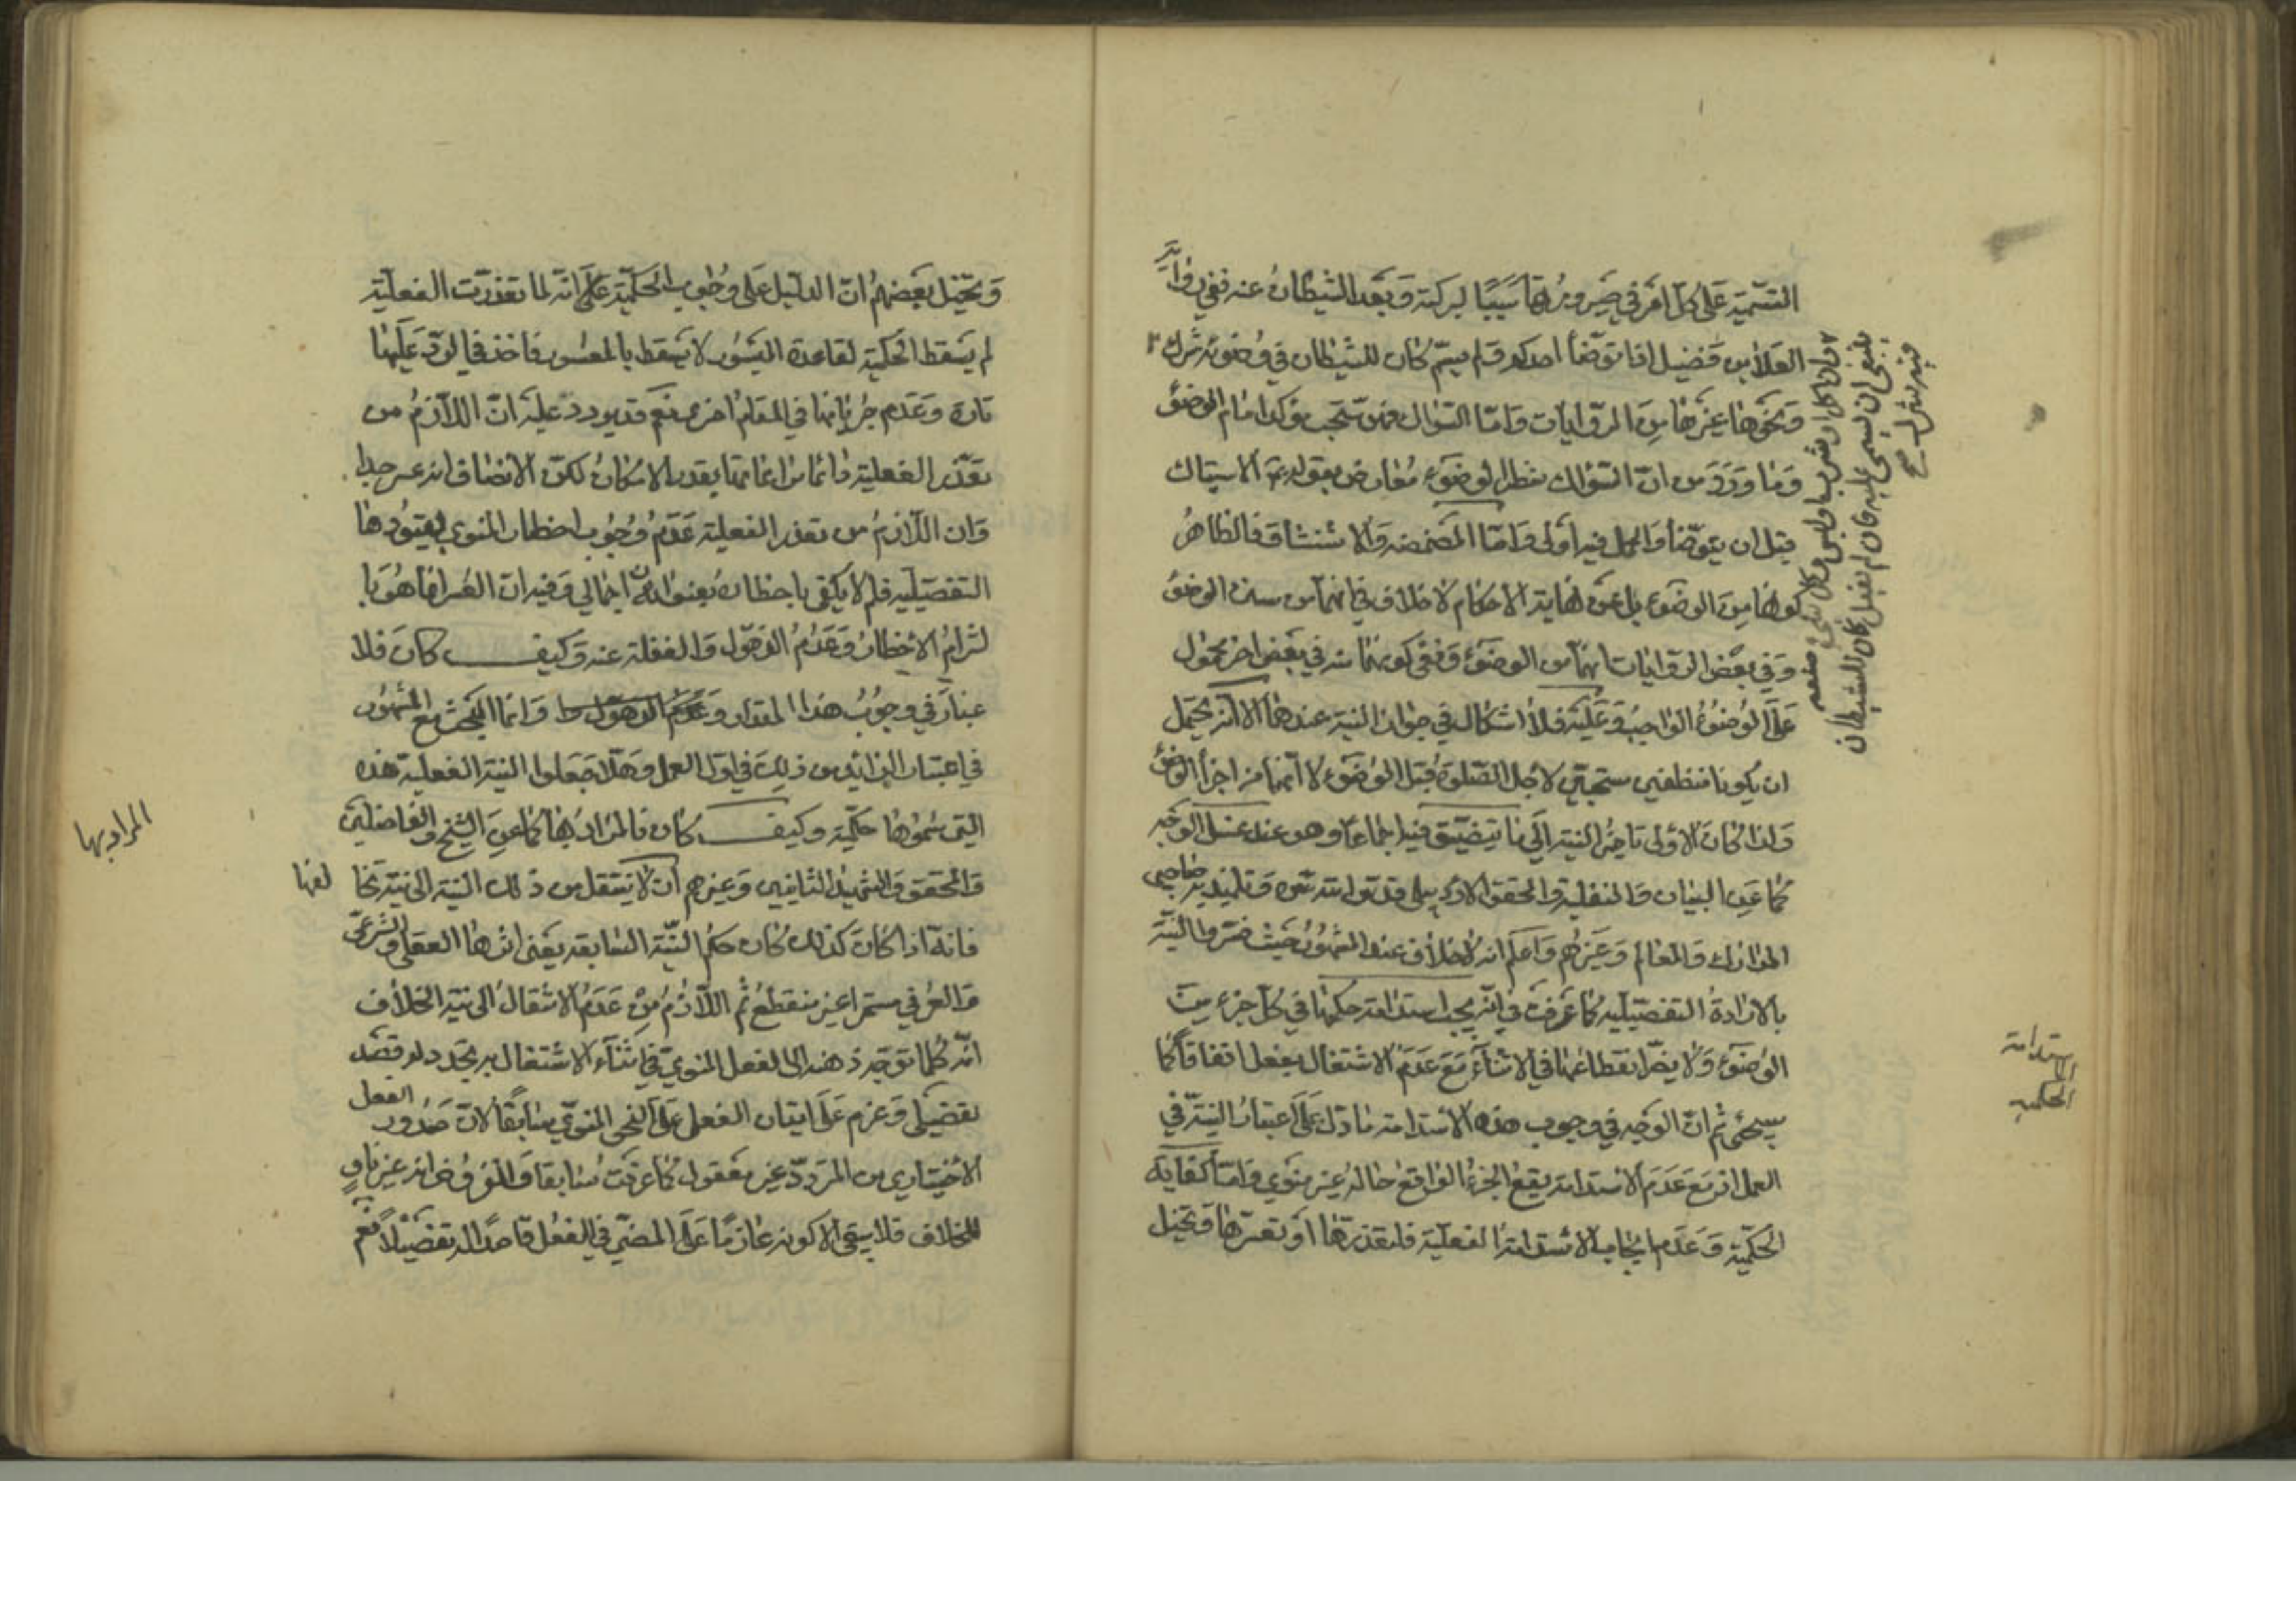 التسمية على كل امر في صيرورتها سببا لبركته وبعد الشيطان عنه ففي رواية
العلا بن فضيل اذا توضأ احدكم ولم يسم كان للشيطان في وضوئه شرك
ونحوها غيرها من الروايات واما السواك فهو مستحب مؤكد امام الوضوء
وما ورد من ان السواك شطر الوضوء معارض بقوله الاستياك
قبل ان يتوضأ والحمل فيه اولى واما المضمضة والاستنشاق فالظاهر
كونها من الوضوء بل عن نهاية الاحكام لا خلاف في انهما من سنن الوضوء
وفي بعض الروايات انهما من الوضوء ونفي كونهما منه في بعض اخر محمول
على الوضوء الواجب وعليه فلا اشكال في جواز النية عندهما الا انه يحتمل
ان يكونا منظفين مستحبين لاجل الصلوة قبل الوضوء لا انهما من اجزاء الوضوء
ولذا كان الاولى تاخير النية الى ما يتضيق فيه اجماعا وهو عند غسل الوجه
كما عن البيان والنفلية والمحقق الاردبيلي قدس الله سره وتلميذيه صاحبي
المدارك والمعالم وغيرهم واعلم انه لا خلاف عند المشهور حيث فسروا النية
بالارادة التفصيلية كما عرفت في انه يجب استدامة حكمها في كل جزء من
الوضوء ولا يضر انقطاعها في الاثناء مع عدم الاشتغال بفعل اتفاقا كما
سيجئ ثم ان الوجه في وجوب هذه الاستدامة ما دل على اعتبار النية في
العمل اذ مع عدم الاستدامة يقع الجزء الواقع حاله غير منوي واما كفاية
الحكمية وعدم ايجاب الاستدامة الفعلية فلتعذرها او تعسرها وتخيل
فان اكل او شرب او لبس وكل شئ صنعه
ينبغي ان يسمى عليه فان لم يفعل كان للشيطان
فيه شرك صح
استدامة
الحكمية
وتخيل بعضهم ان الدليل على وجوب الحكمية على انه لما تعذرت الفعلية
لم يسقط الحكمية لقاعدة الميسور لا يسقط بالمعسور فاخذ في الرد عليها
تارة وعدم جريانها في المقام اخرى نعم قد يورد عليه ان اللازم من
تعذر الفعلية دائما مراعاتها بقدر الامكان لكن الانصاف انه عسر جدا
وان اللازم من تعذر الفعلية عدم وجوب احظار المنوي بقيودها
التفصيلية فلم لا يكتفى باحظاره بعنوان اجمالي وفيه ان العسر انما هو با
لتزام الاخطار وعدم الذهول والغفلة عنه وكيف كان فلا
عبارة في وجوب هذا المقدار وعدم الذهول وانما البحث مع المشهور
في اعتبار الزائد من ذلك في اول العمل وهلا جعلوا النية الفعلية هذه
التي سموها حكمية وكيف كان فالمراد بها كما عن الشيخ والفاضلين
والمحقق والشهيد الثانيين وغيرهم ان لا ينتقل من تلك النية الى نية تخا
لفها
فانه اذا كان كذلك كان حكم النية السابقة يعني اثرها العقلي والشرعي
والعرفي مستمرا غير منقطع ثم اللازم من عدم الانتقال الى نية الخلاف
انه كلما توجه ذهنه الى الفعل المنوي في اثناء الاشتغال به يجدد له قصد
تفضيلي وعزم على اتيان الفعل على النحو المنوي سابقا لان صدور الفعل
الاختياري من المتردد غير معقول كما عرفت سابقا والمفروض انه غير ناو
للخلاف فلا يبقى الا كونه عازما على المضي في الفعل قاصدا له تفصيلا نعم
المراد بها